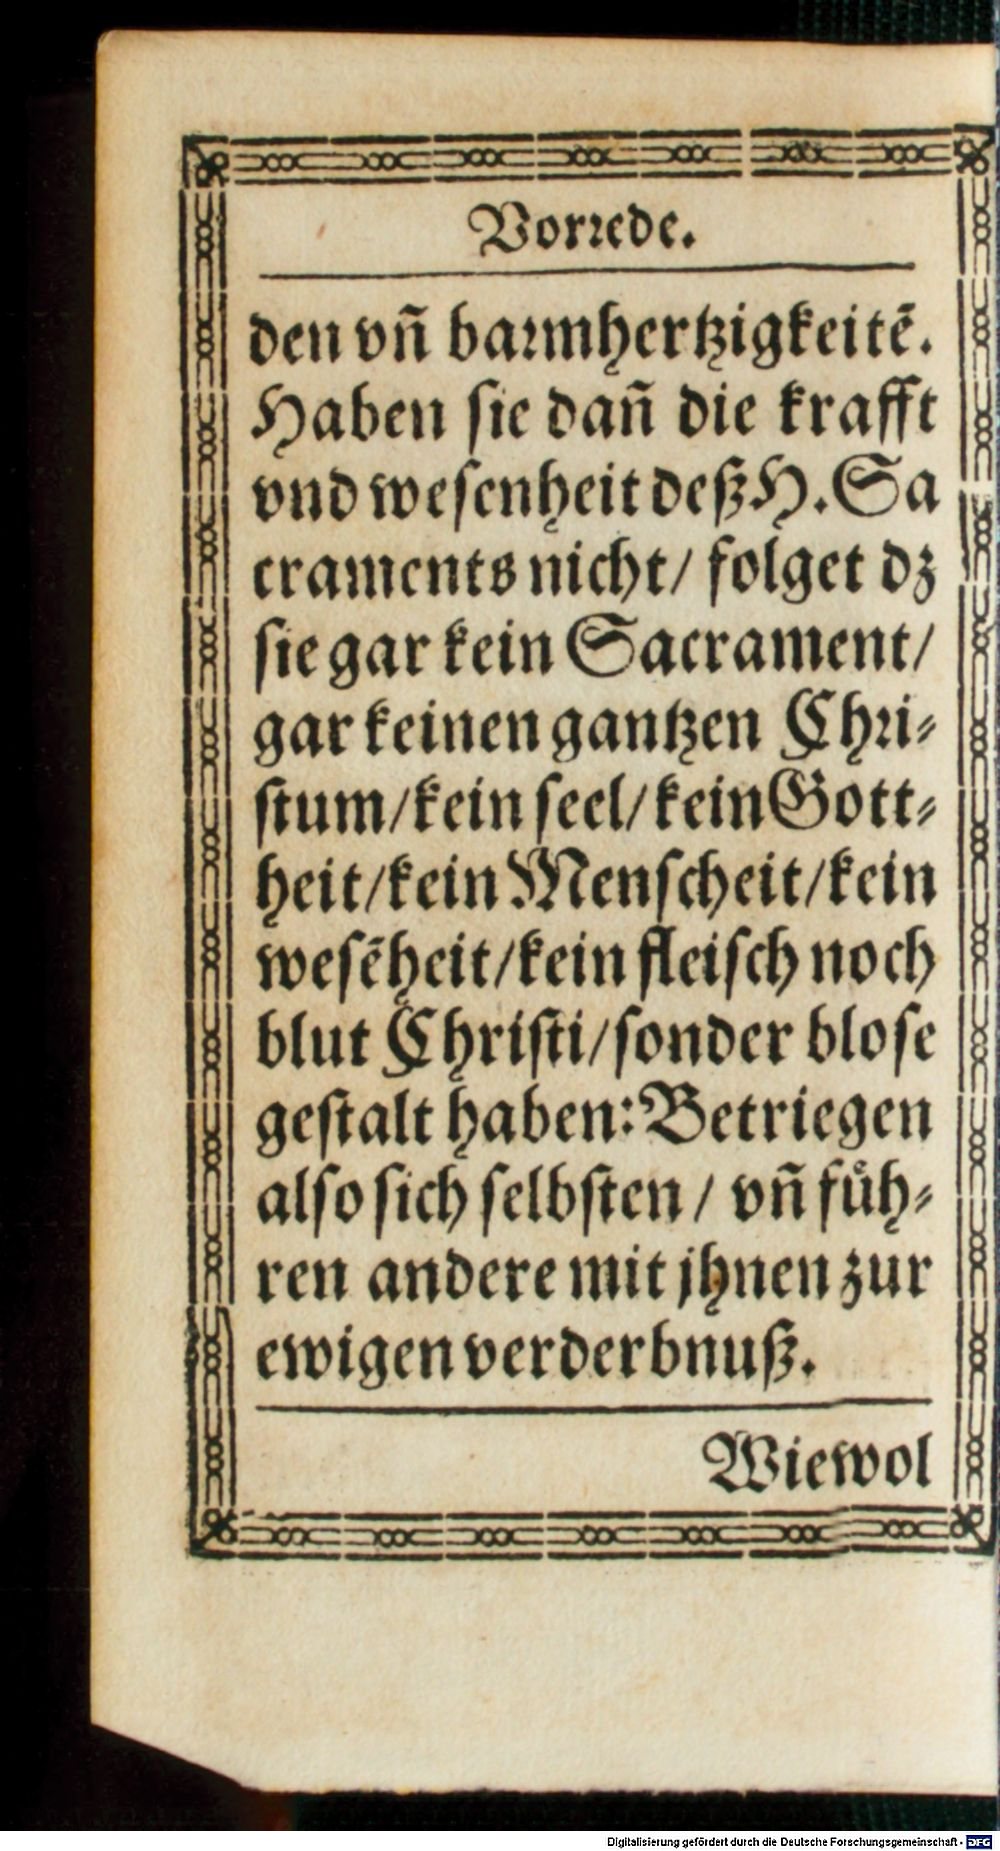 Vorrede.
den vñ barmhertzigkeitẽ.
Haben sie dañ die krafft
vnd wesenheit deß H. Sa
craments nicht/ folget dz
sie gar kein Sacrament/
gar keinen gantzen Chri-
stum/kein seel/kein Gott-
heit/kein Menscheit/kein
wesẽheit/kein fleisch noch
blut Christi/sonder blose
gestalt haben: Betriegen
also sich selbsten/ vñ fuͤh-
ren andere mit jhnen zur
ewigen verderbnuß.
Wiewol
Digitalisierung gefördert durch die Deutsche Forschungsgemeinschaft - DFG